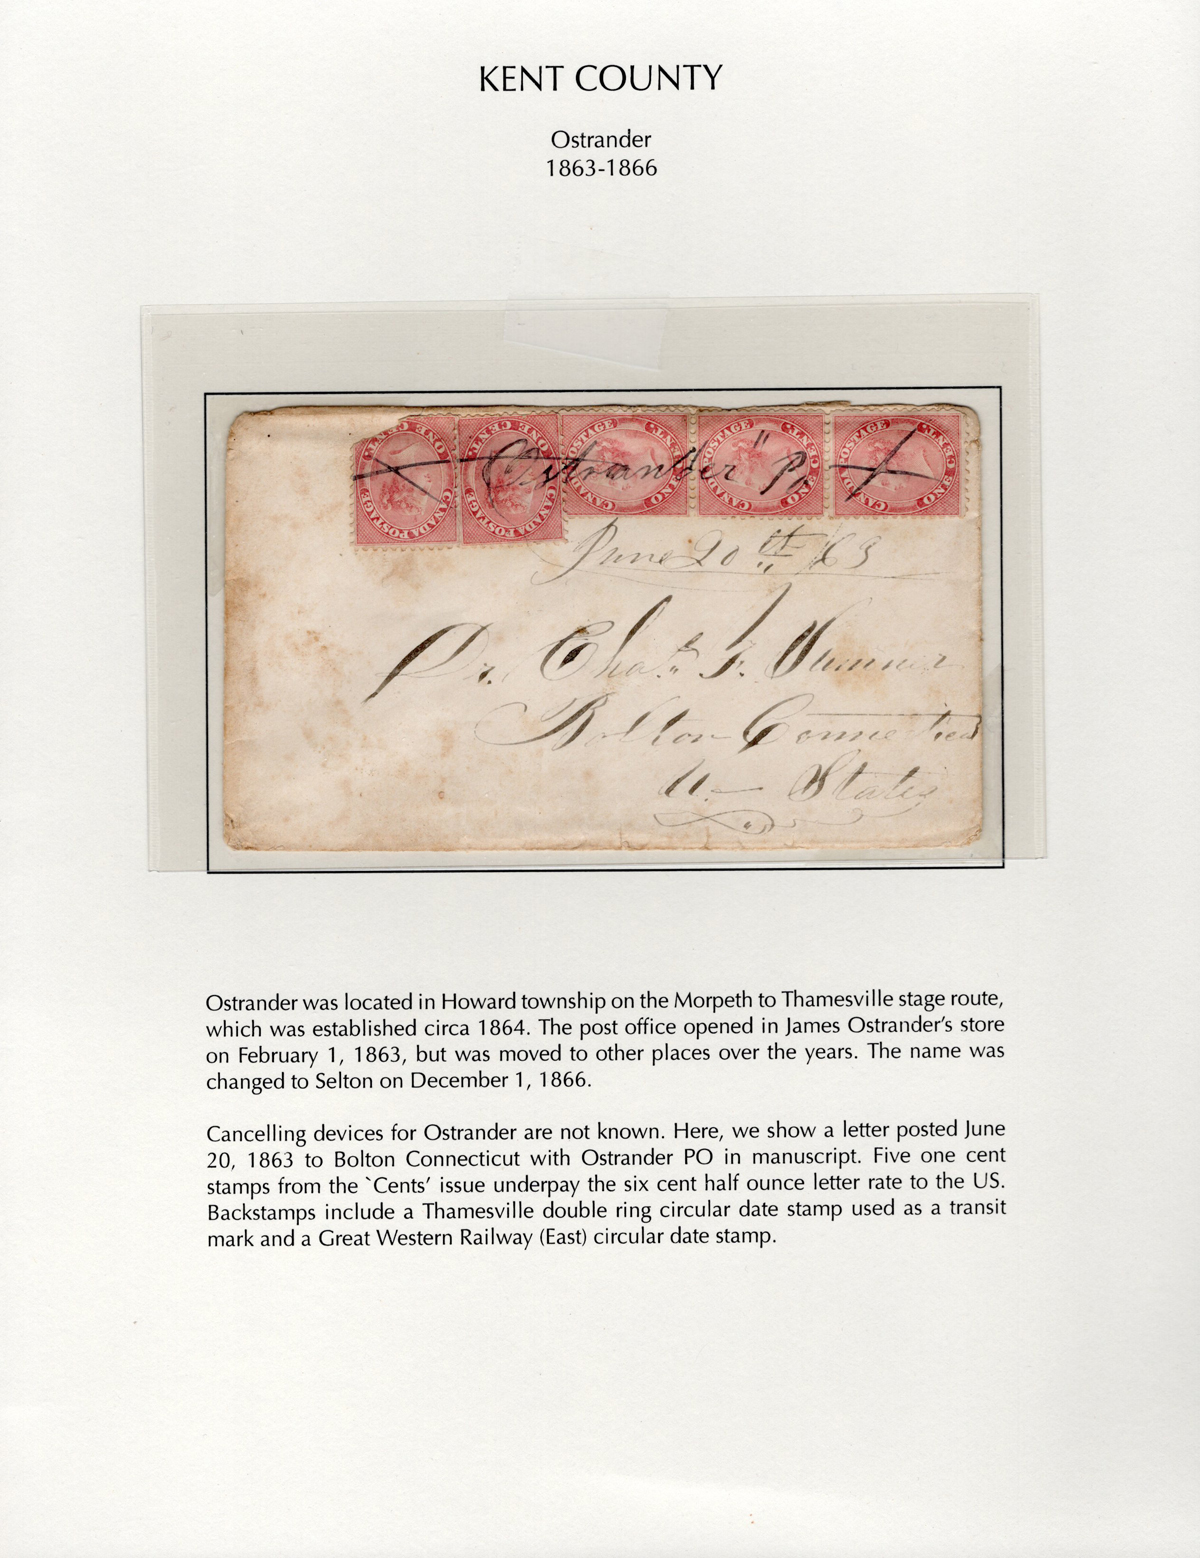 KENT COUNTY
Ostrander
1863-1866
ONE CENT.
CANADA POSTAGE
ONE CENT.
CANADA POSTAGE
CANADA POSTAGE
ONE CENT.
CANADA POSTAGE
ONE CENT.
CANADA POSTAGE
ONE CENT.
Ostrander" Po
June 20th /63
Dr. Chas. F. Sumner
Bolton Connecticut
U- States
Ostrander was located in Howard township on the Morpeth to Thamesville stage route,
which was established circa 1864. The post office opened in James Ostrander's store
on February 1, 1863, but was moved to other places over the years. The name was
changed to Selton on December 1, 1866.
Cancelling devices for Ostrander are not known. Here, we show a letter posted June
20, 1863 to Bolton Connecticut with Ostrander PO in manuscript. Five one cent
stamps from the `Cents' issue underpay the six cent half ounce letter rate to the US.
Backstamps include a Thamesville double ring circular date stamp used as a transit
mark and a Great Western Railway (East) circular date stamp.